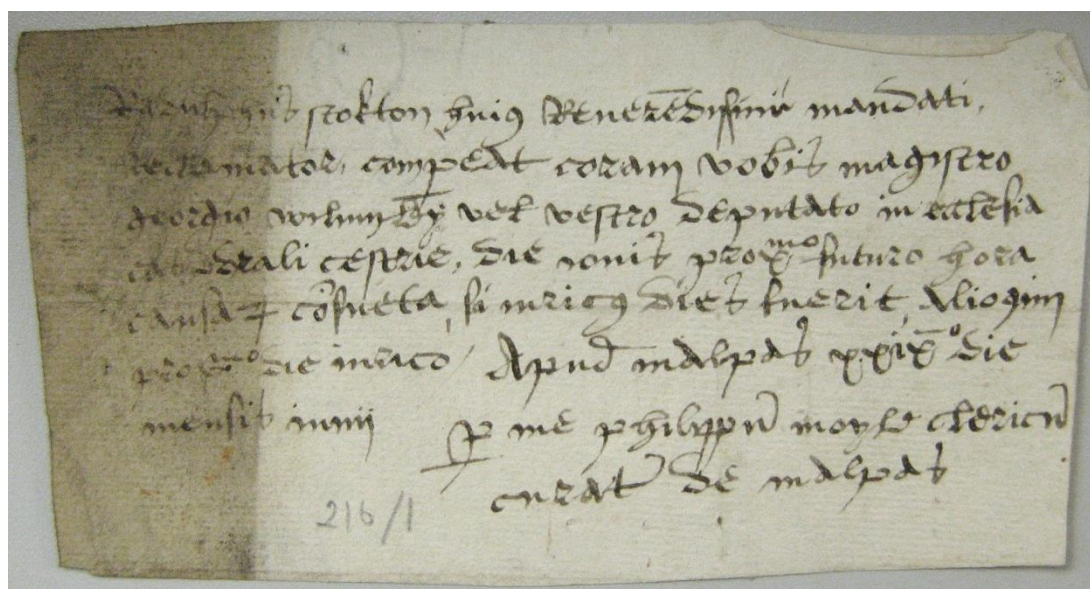 stokton huius Reverēdissimi mandati,
comp̱eat coram vobis magistro
georgio wilmysly vel vestro deputato in ecclesia
cathedrali cestrie, die iovis proxᵐᵒ futuro hora
causaꝝ cōsueta, si iuricus dies fuerit, Alioquin
proxᵐᵒ die iurico, Apud malpas xxixº die
mensis iunij ꝑ me philippū moyle clericū
curat̄ de malpas
216/1